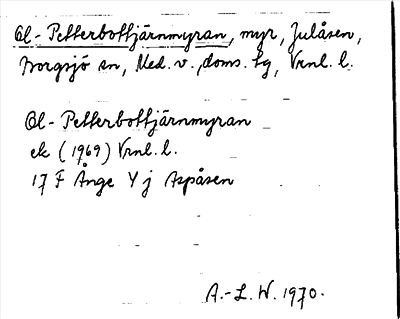 Ol-Petterbottjärnmyran, myr, Julåsen,
Borgsjö sn, Med. v. doms. sg, Vrnl. l.
Ol-Petterbottjärnmyran
ek (1969) Vrnl. l.
17 F Ånge Y j Aspåsen
A.-L. W. 1970.